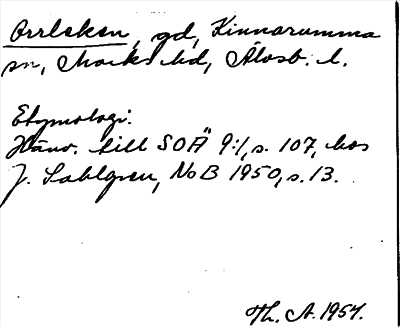 Orrleken, gd, Kinnarumma
sn, Marks hd, Älvsb. l.
Etymologi:
Hänv. till SOÄ 9:1, s. 107, hos
J. Sahlgren, NoB 1950, s. 13.
Th. A. 1954.